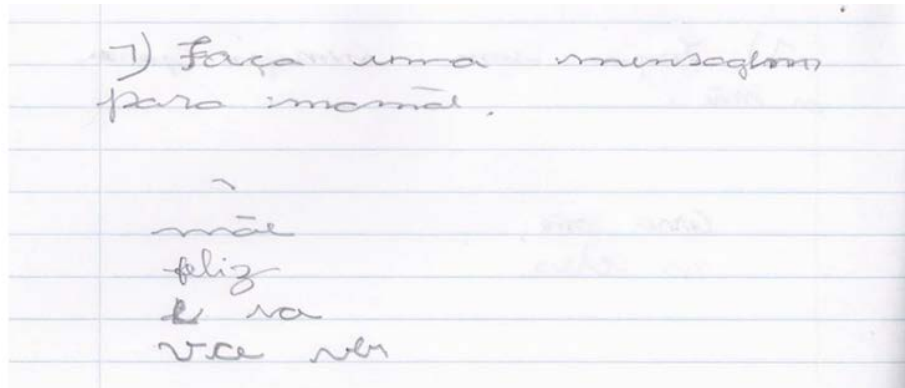 7) Faça uma mensagem
para mamãe.
mãe
feliz
e va
vce ver